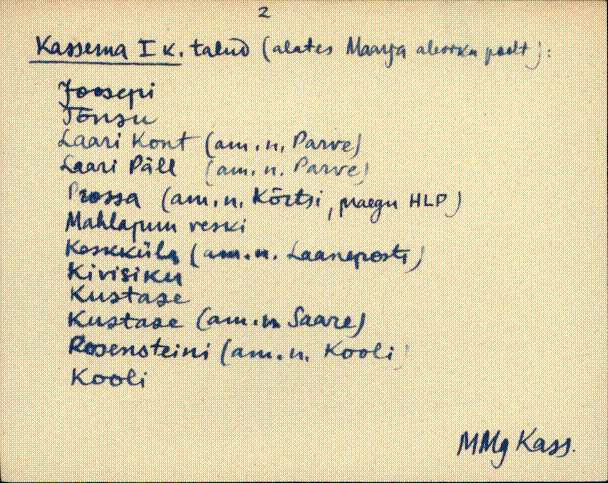 2
Kassema I k. talud (alates Maarja alevku poolt):
Joosepi
Tõnsu
Laari Kont (am.n. Parve)
Laari Päll (am.n. Parve)
Prossa (am.n. Kõrtsi, praegu HLP)
Mahlapuu veski
Keskküla (am.n. Laaneposti)
Kivisiku
Kustase
Kustase (am.n Saare)
Rosensteini (am.n. Kooli)
Kooli
MMg Kass.